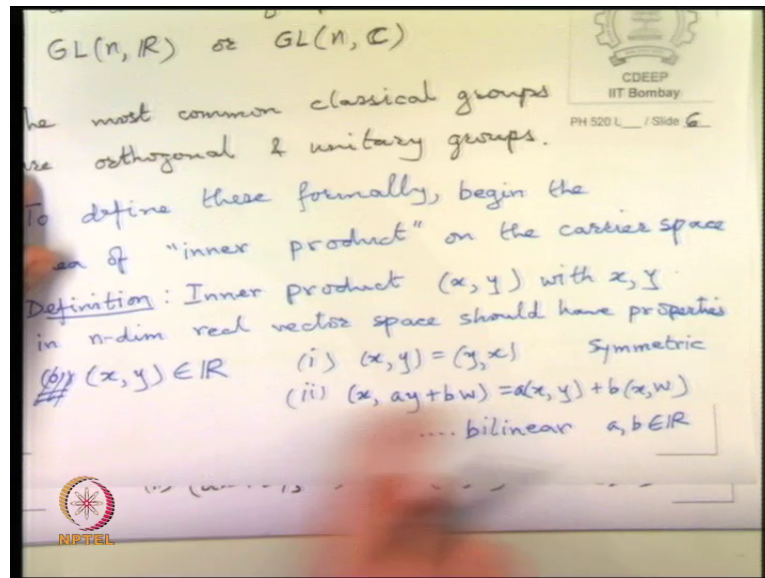 GL(n, ℝ) or GL(n, ℂ)
CDEEP
IIT Bombay
PH 520 L___ / Slide 6
he most common classical groups
re orthogonal & unitary groups.
To define these formally, begin the
ea of "inner product" on the carrier space
Definition : Inner product (x, y) with x, y
in n-dim real vector space should have properties
(x, y) ∈ ℝ (i) (x, y) = (y, x) Symmetric
(ii) (x, ay + bw) = a(x, y) + b(x, w)
.... bilinear a, b ∈ ℝ
NPTEL